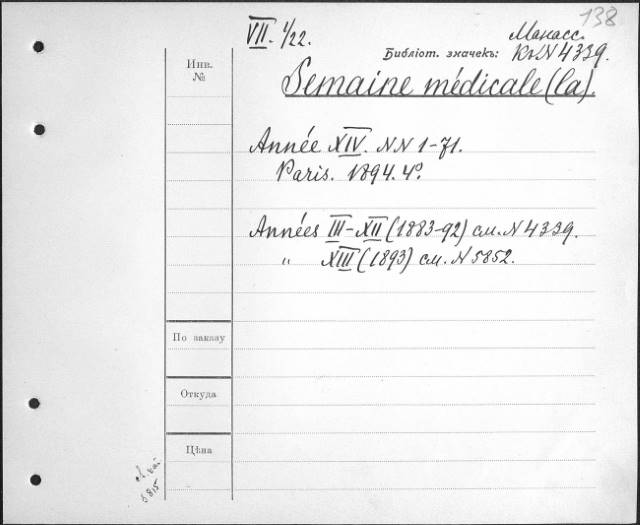 138
VII. 1/22.
Манасс.
Библіот. значекъ: Кн N 4339.
Инв.
№
Semaine médicale (la).
Année XIV. NN 1-71.
Paris. 1894. 4°.
Années III-XII (1883-92) см. N 4339.
" XIII (1893) см. N 5852.
По заказу
Откуда
Цѣна
5815